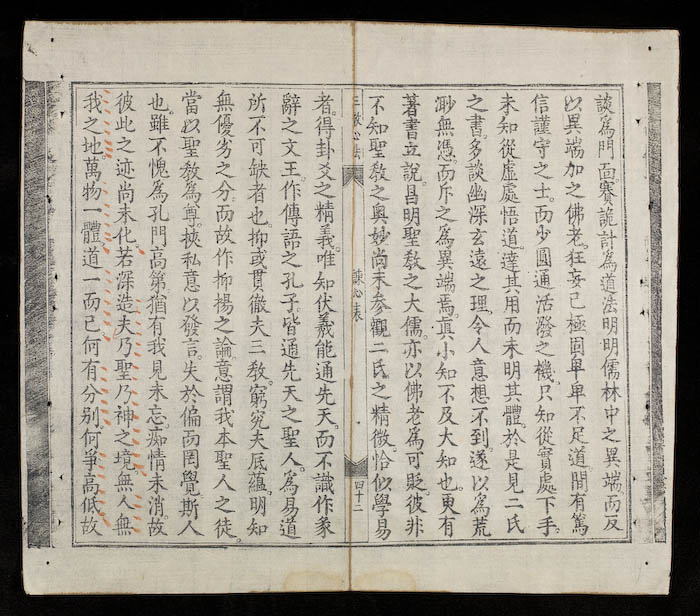 談爲門面。賽詭計爲道法。明明儒林中之異端。而反
以異端加之佛老。狂妄已極。固卑卑不足道。間有篤
信謹守之士。而少圓通活潑之機。只知從實處下手。
未知從虛處悟道。達其用而未明其體。於是見二氏
之書。多談幽深玄遠之理。令人意想不到。遂以爲荒
渺無憑。而斥之爲異端焉。眞小知不及大知也。更有
著書立說。昌明聖教之大儒。亦以佛老爲可貶。彼非
不知聖教之奧妙。尚未參觀二氏之精微。恰似學易
三教心法
諫心表
四十二
者。得卦爻之精義。唯知伏羲能通先天。而不識作彖
辭之文王。作傳語之孔子。皆通先天之聖人。爲易道
所不可缺者也。抑或貫徹夫三教。窮究夫底蘊。明知
無優劣之分。而故作抑揚之論。意謂我本聖人之徒。
當以聖教爲尊。挾私意以發言。失於偏而罔覺。斯人
也。雖不愧爲孔門高第。猶有我見未忘。痴情未消。故
彼此之迹尚未化。若深造夫乃聖乃神之境。無人無
我之地。萬物一體。道一而已。何有分別。何爭高低。故